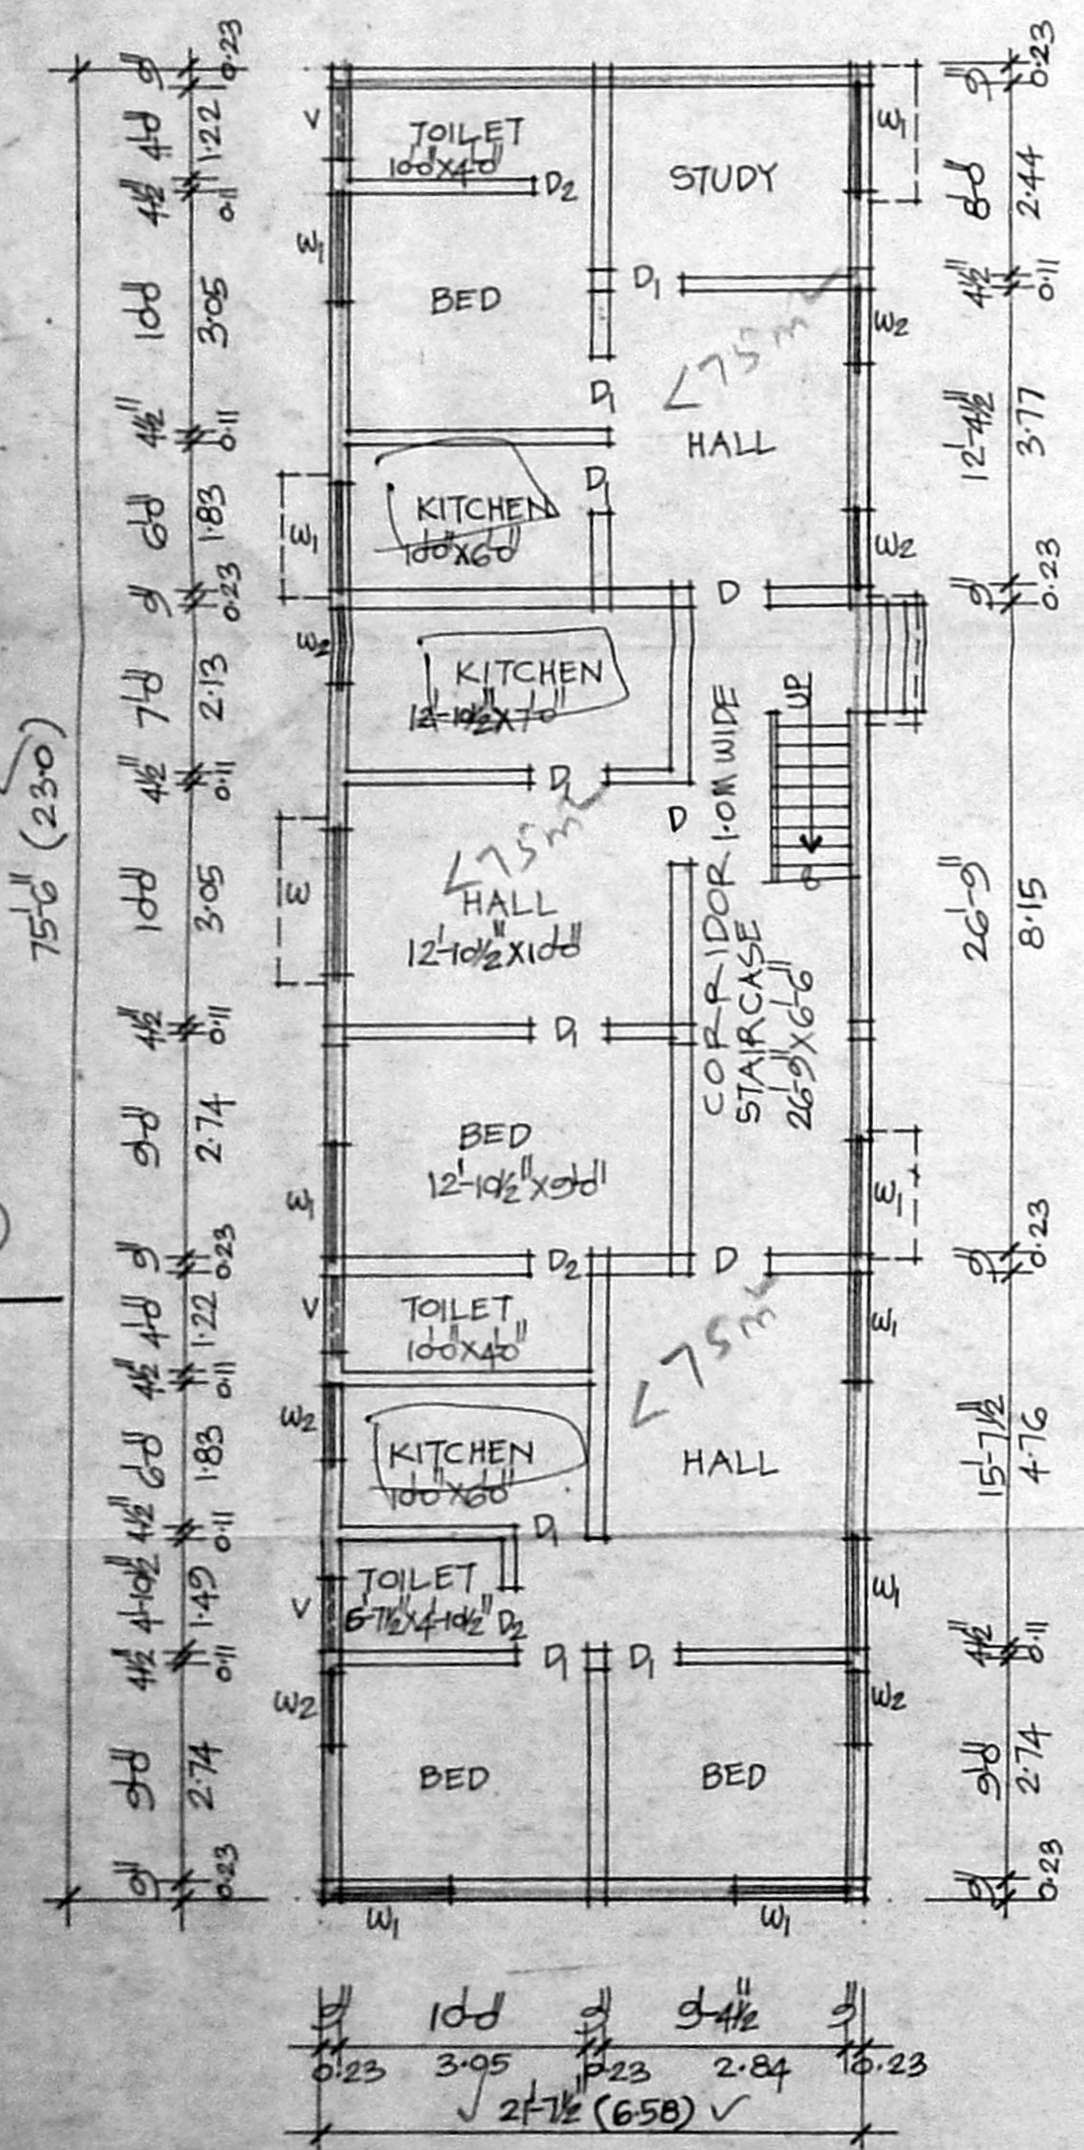 9" 0.23
4'-0" 1.22
4½" 0.11
10'-0" 3.05
4½" 0.11
6'-0" 1.83
9" 0.23
7'-0" 2.13
4½" 0.11
10'-0" 3.05
4½" 0.11
9'-0" 2.74
9" 0.23
4'-0" 1.22
4½" 0.11
6'-0" 1.83
4½" 0.11
4'-10½" 1.49
4½" 0.11
9'-0" 2.74
9" 0.23
75'-6" (23.0)
V
TOILET
10'-0"X4'-0"
D2
STUDY
W1
W1
BED
D1
W2
<75m²
D1
HALL
D1
KITCHEN
10'-0"X6'-0"
W1
W2
D
W2
KITCHEN
12'-10½"X7'-0"
UP
D1
D
<75m²
W
HALL
12'-10½"X10'-0"
CORRIDOR 1.0M WIDE
STAIRCASE
26'-9"X6'-6"
D1
BED
12'-10½"X9'-0"
W1
W1
D2
D
V
TOILET
10'-0"X4'-0"
W1
<75m²
W2
KITCHEN
10'-0"X6'-0"
HALL
D1
V
TOILET
6'-7½"X4'-10½"
D2
W1
D1
D1
W2
W2
BED
BED
W1
W1
9" 0.23
8'-0" 2.44
4½" 0.11
12'-4½" 3.77
9" 0.23
26'-9" 8.15
9" 0.23
15'-7½" 4.76
4½" 0.11
9'-0" 2.74
9" 0.23
9" 10'-0" 9" 9'-4½" 9"
0.23 3.05 0.23 2.84 0.23
21'-7½" (6.58)